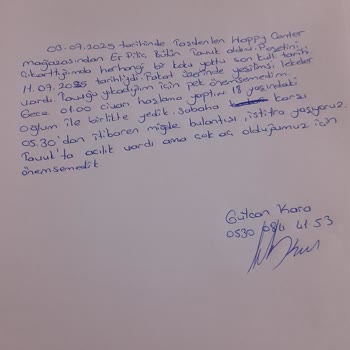 03.09.2025 tarihinde Taşdelen Happy Center
mağazasından Er Piliç Bütün Tavuk aldık. Poşetini
çıkarttığımda herhangi bir koku yoktu son kull. tarih.
11.09.2025 tarihliydi. Fakat üzerinde yeşilimsi lekeler
vardı. Tavuğu yıkadığım için pek önemsemedim.
Gece 01:00 civarı haşlama yaptım 18 yaşındaki
oğlum ile birlikte yedik. Sabaha karşı
05.30'dan itibaren mide bulantısı, istifra yaşıyoruz.
Tavuk'ta acılık vardı ama çok aç olduğumuz için
önemsemedik.
Gülcan Kara
0530 084 41 53